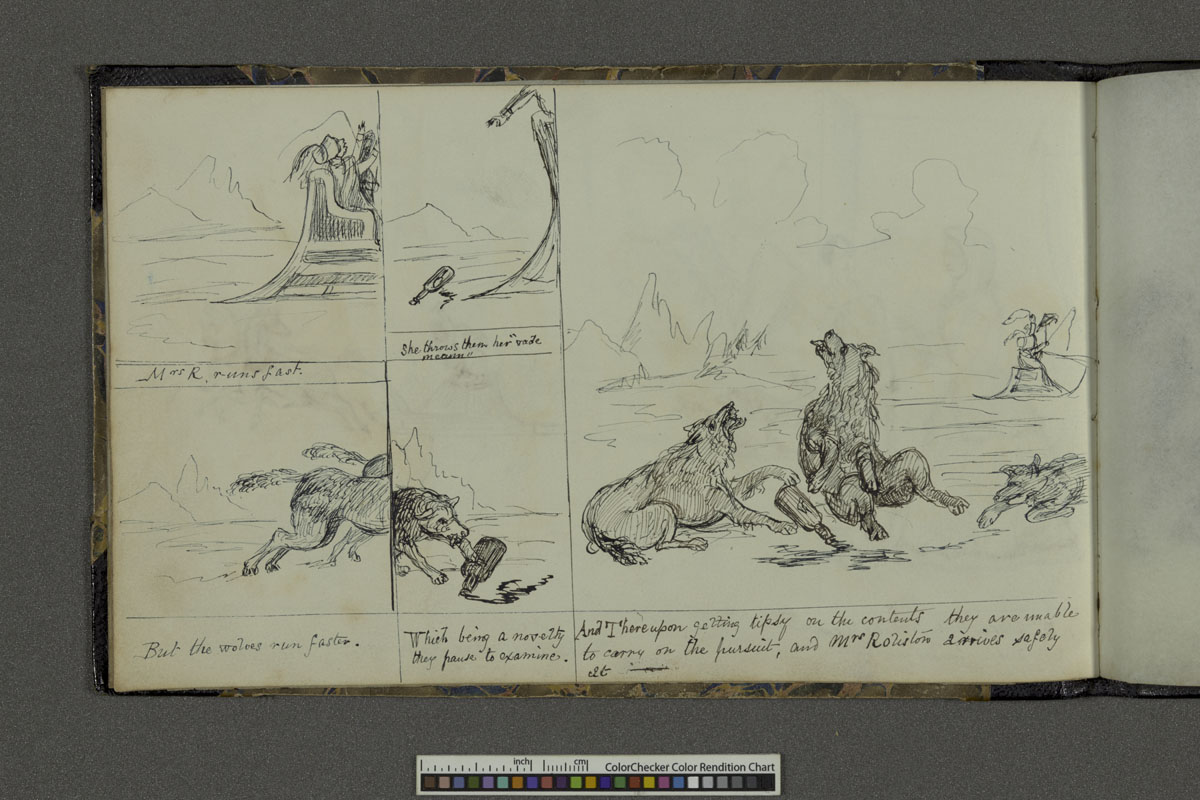 Mrs R. runs fast.
But the wolves run faster.
She throws them her "vade
mecum"
Which being a novelty
they pause to examine.
And Thereupon getting tipsy on the contents they are unable
to carry on the pursuit, and Mrs Rolleston arrives safely
at
inch
cm
ColorChecker Color Rendition Chart